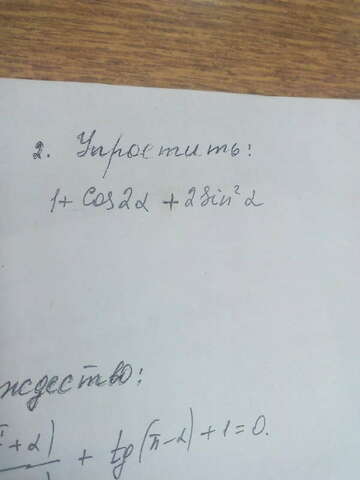 2. Упростить:
1+ cos2α + 2sin²α
ждество:
+ α)
+ tg(π-α)+1=0.